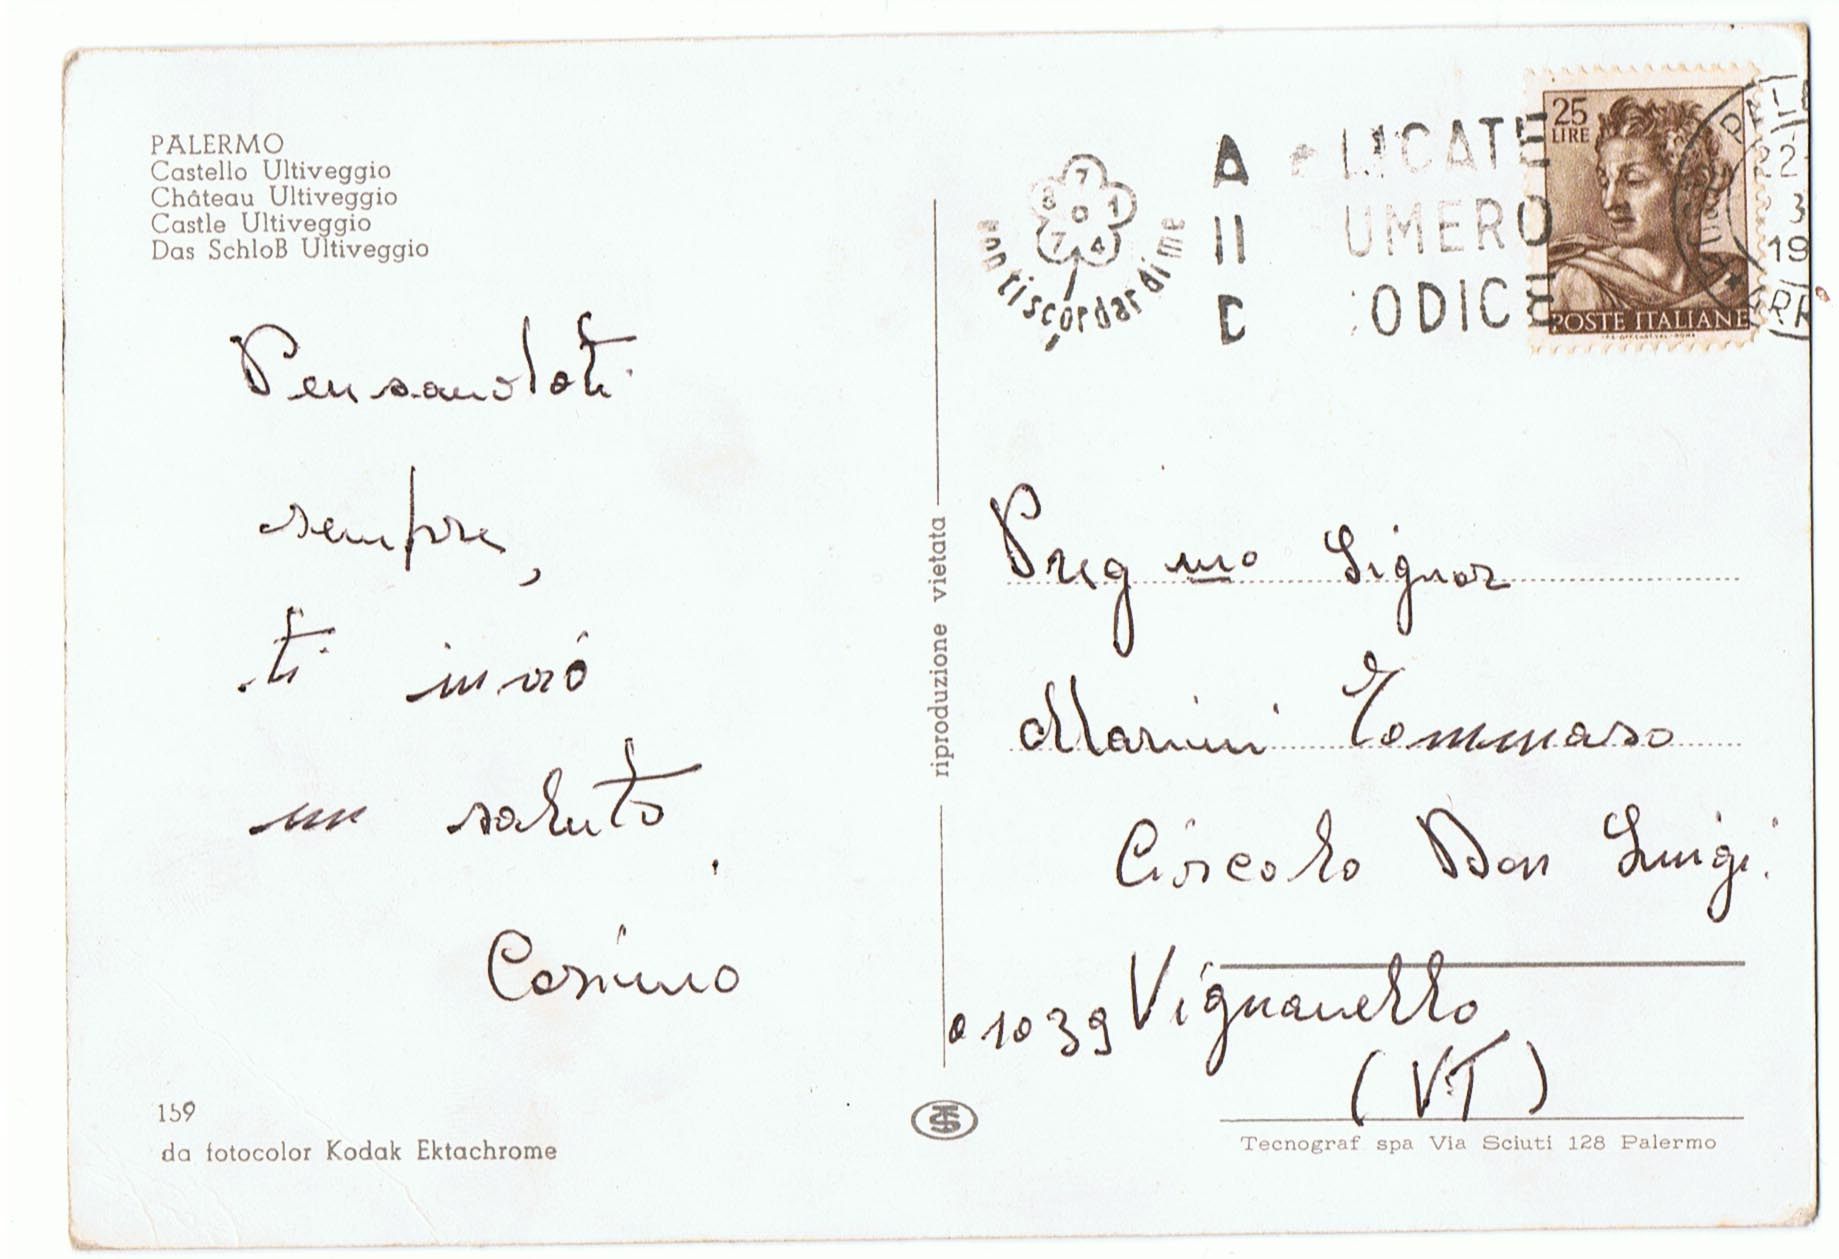 PALERMO
Castello Ultiveggio
Château Ultiveggio
Castle Ultiveggio
Das SchloB Ultiveggio
Pensandoti
sempre,
ti invio
un saluto
Cosimo
159
da fotocolor Kodak Ektachrome
riproduzione vietata
8 7 1 0 7 4
non ti scordar di me
LICATE
UMERO
ODICE
25
LIRE
POSTE ITALIANE
22
3
19
Preg mo Signor
Marini Tommaso
Circolo Don Luigi
01039 Vignanello
(VT)
Tecnograf spa Via Sciuti 128 Palermo